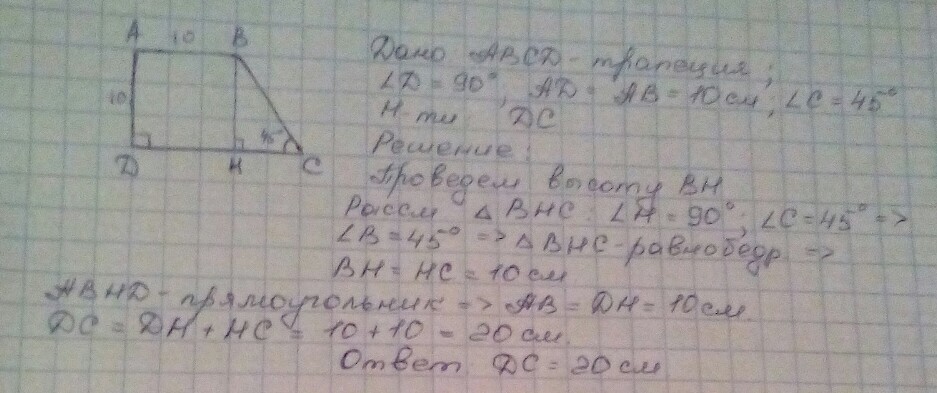 A 10 B
10
45°
D H C
Дано ABCD - трапеция;
∠D = 90°, AD = AB = 10 см; ∠C = 45°
Н-ти DC
Решение:
Проведем высоту BH
Рассм △ BHC. ∠H = 90°; ∠C = 45° =>
∠B = 45° => △ BHC - равнобедр =>
BH = HC = 10 см
ABHD - прямоугольник => AB = DH = 10 см.
DC = DH + HC = 10 + 10 = 20 см.
Ответ DC = 20 см